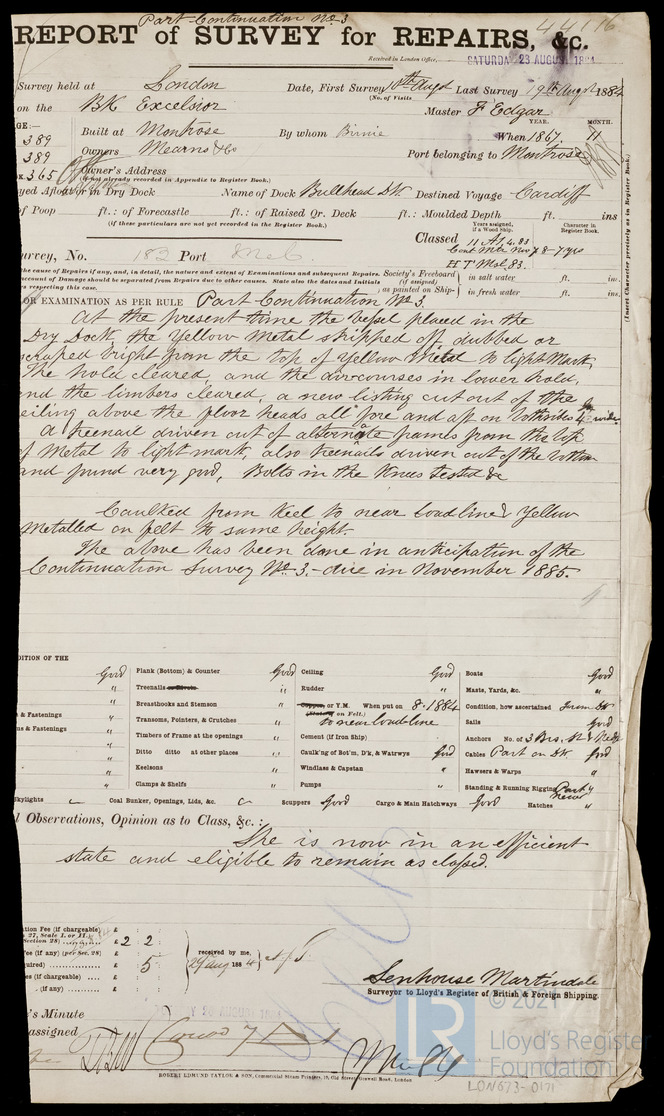 Part Continuation No 3
44116
REPORT of SURVEY for REPAIRS, &c.
Received in London Office, SATURDAY 23 AUGUST 1884
Survey held at London Date, First Survey Augt Last Survey 19th Augt 1884
(No. of Visits
on the BK Excelsior Master F Edgar
GE:— YEAR. MONTH.
389 Built at Montrose By whom Birnie When 1867. 11
389 Owners Mearns & Co Port belonging to Montrose
365 Owner's Address
(if not already recorded in Appendix to Register Book.)
yed Afloat or in Dry Dock Name of Dock Bullhead DK Destined Voyage Cardiff
of Poop ft.: of Forecastle ft.: of Raised Qr. Deck ft.: Moulded Depth ft. ins
(if these particulars are not yet recorded in the Register Book.)
Years assigned, if a Wood Ship. Character in Register Book.
Classed 11 A1. 4. 83
urvey, No. 182 Port
H T Mol 83.
the cause of Repairs if any, and, in detail, the nature and extent of Examinations and subsequent Repairs.
account of Damage should be separated from Repairs due to other causes. State also the dates and Initials
respecting this case.
Society's Freeboard (if assigned) as painted on Ship— in salt water ft. in.
in fresh water ft. in.
(Insert Character precisely as in Register Book.)
OR EXAMINATION AS PER RULE Part Continuation No 3.
At the present time the vessel placed in the
Dry Dock, the Yellow Metal stripped off, dubbed or
scraped bright from the top of Yellow Metal to light Mark,
The hold cleared, and the aircourses in lower hold,
nd the limbers cleared, a new listing cut out of the
eiling above the floor heads all fore and aft on both sides 4 in wide
A treenail driven out of alternate frames from the top
of Metal to light mark, also treenails driven out of the bottom
and found very good, Bolts in the Knees tested &c
Caulked from Keel to near Loadline & Yellow
Metalled on felt to same height.
The above has been done in anticipation of the
Continuation Survey No 3.- due in November 1885.
DITION OF THE
Good Plank (Bottom) & Counter Good Ceiling Good Boats Good
" Treenails or Rivets " Rudder " Masts, Yards, &c. "
" Breasthooks and Stemson " Copper, or Y.M. When put on 8.1884 Condition, how ascertained from DK
(Stating on Felt.)
s & Fastenings " Transoms, Pointers, & Crutches " to near load-line Sails Good
ms & Fastenings " Timbers of Frame at the openings " Cement (if Iron Ship) Anchors No. of 3 Brs.
" Ditto ditto at other places " Caulk'ng of Bot'm, D'k, & Watrwys Good Cables Part on DK Good
" Keelsons " Windlass & Capstan " Hawsers & Warps "
" Clamps & Shelfs " Pumps " Standing & Running Rigging Partly New "
Skylights Coal Bunker, Openings, Lids, &c. Scuppers Good Cargo & Main Hatchways Good Hatches "
l Observations, Opinion as to Class, &c.:
She is now in an efficient
state and eligible to remain as classed.
tion Fee (if chargeable)
s 27, Scale I. or II.) £
Section 28) £ 2 : 2 :
Fee (if any) (per Sec. 28) £ : 5 : received by me,
quired) £ Aug 1884
es (if chargeable) £
(if any) £
Senhouse Martindale
Surveyor to Lloyd's Register of British & Foreign Shipping.
's Minute AUGUST 1884
assigned
ROBERT EDMUND TAYLOR & SON, Commercial Steam Printers, 19, Old Street, Goswell Road, London
LR
© 2021
Lloyd's Register
Foundation
LON673-0171